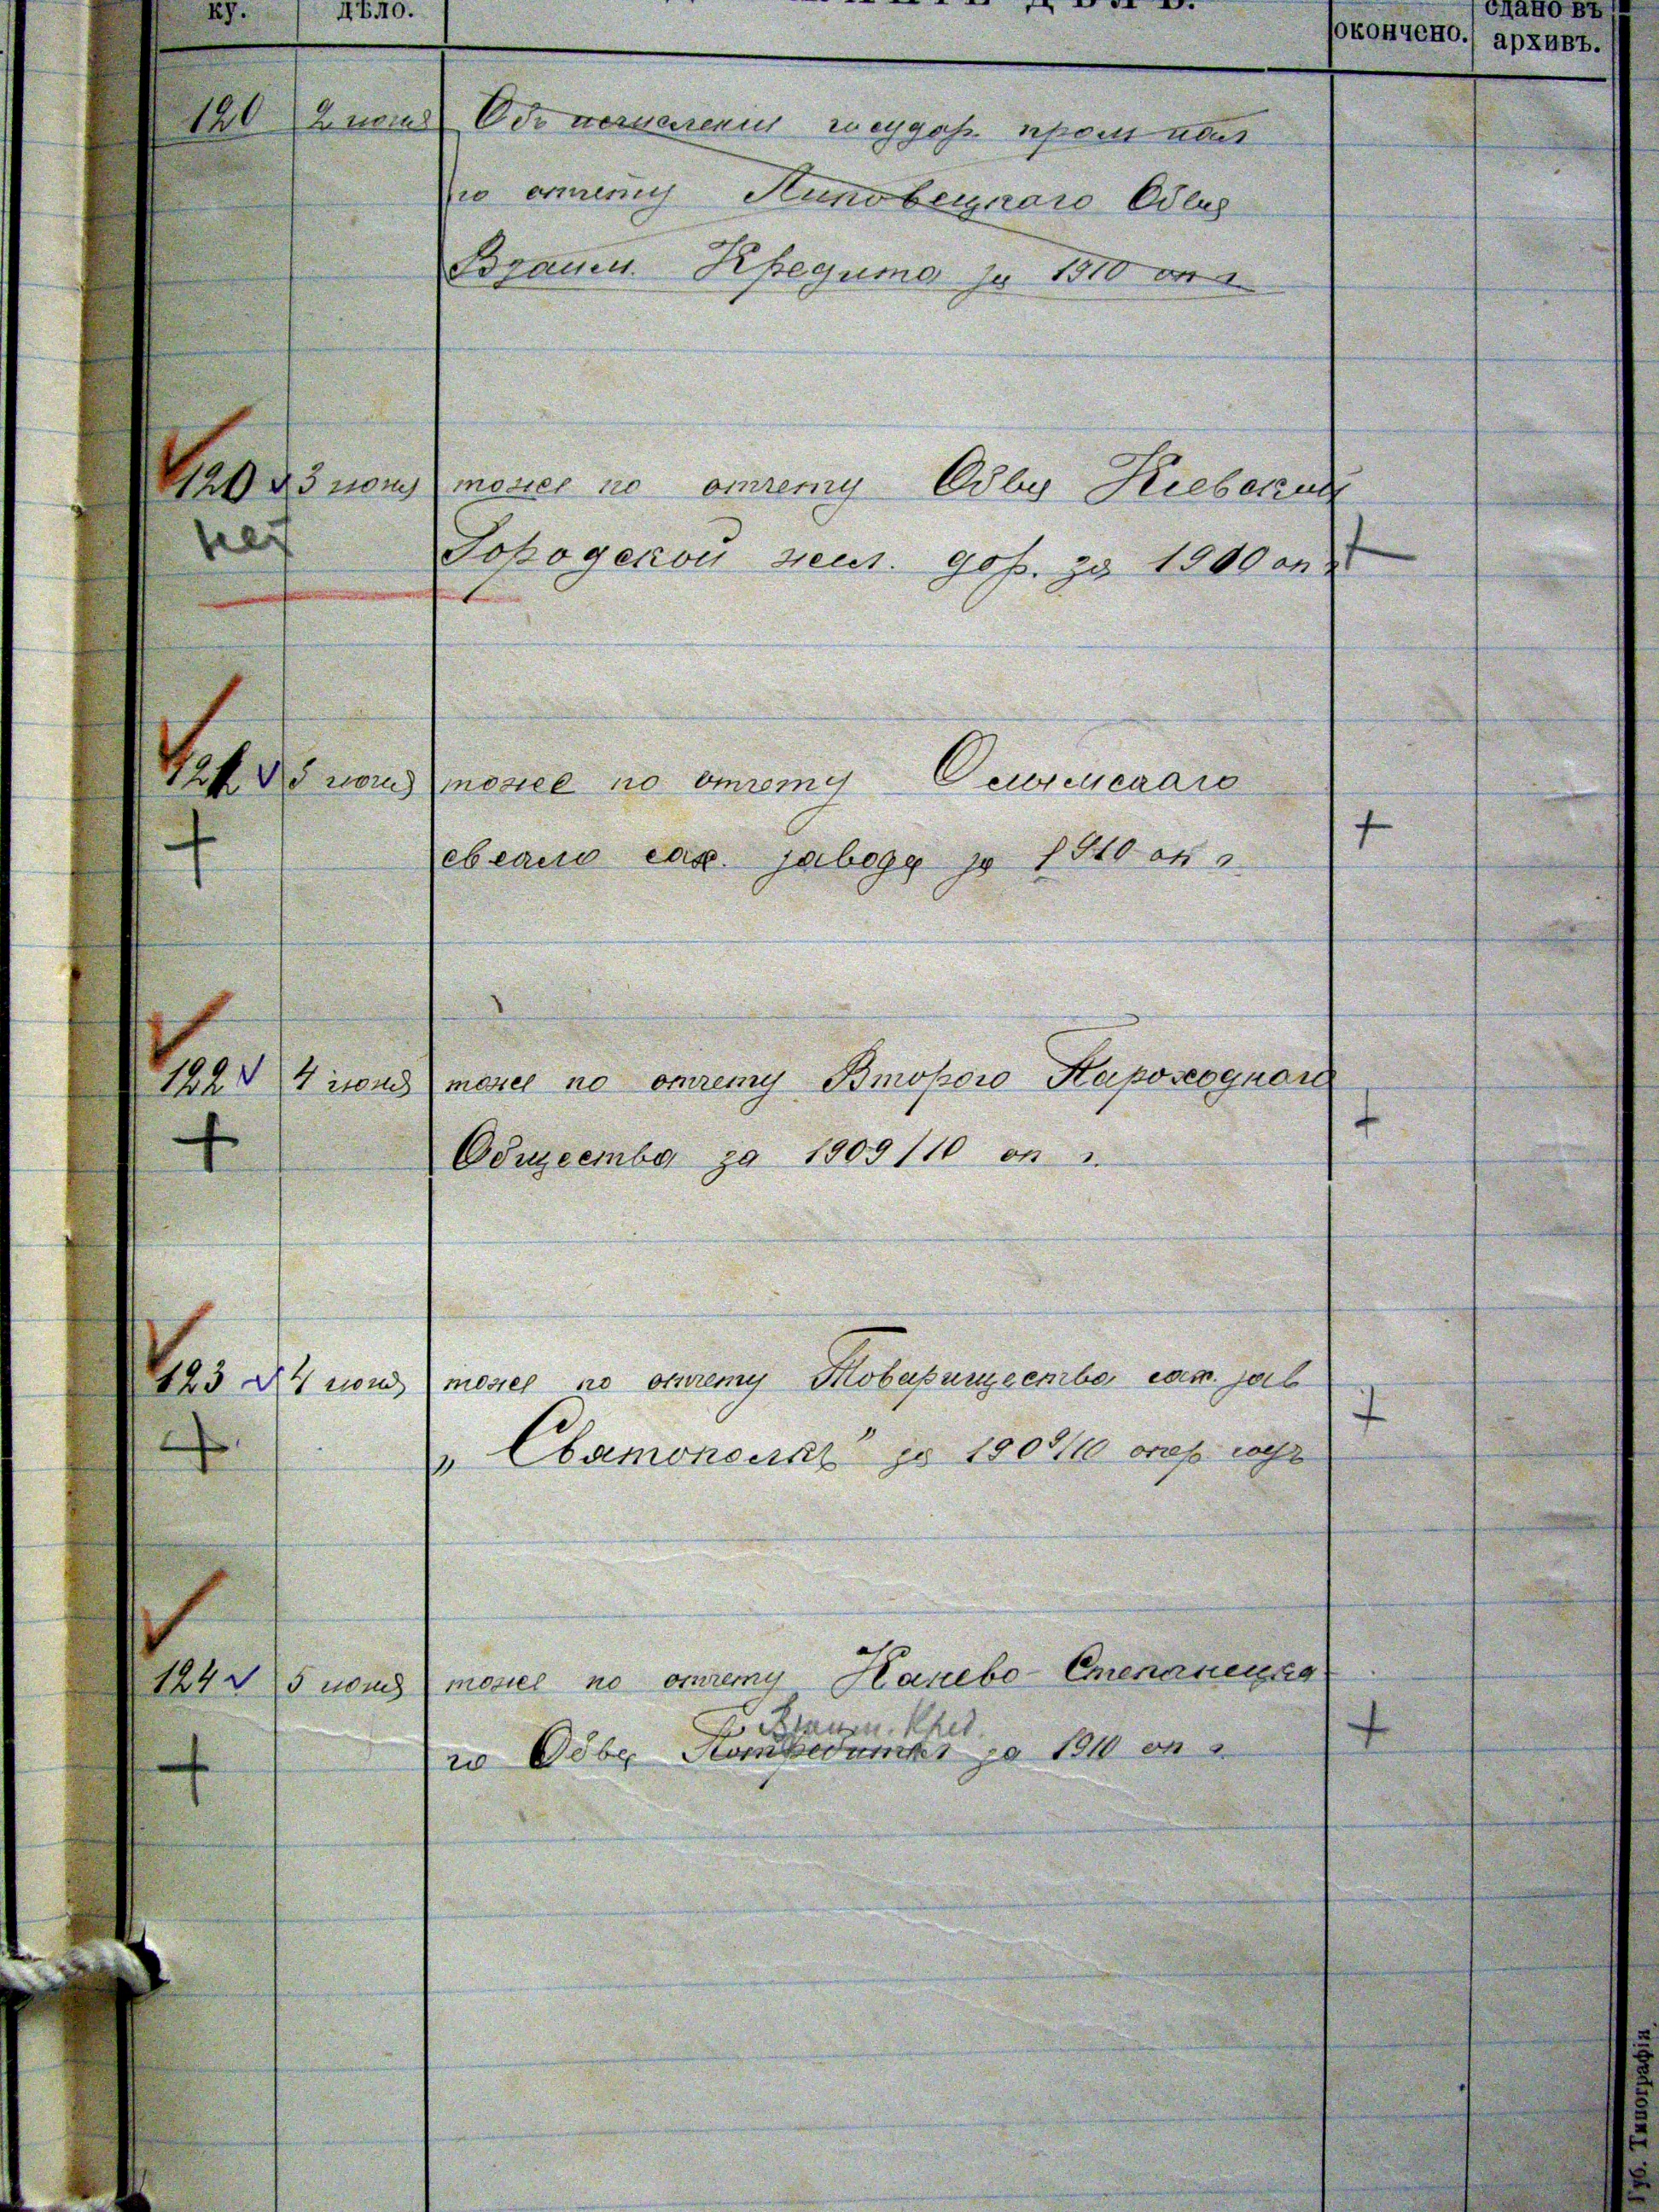 ку. дѣло. окончено. сдано въ архивъ.
120 2 июня Объ исчислении государ. пром нал
по отчету Липовецкаго Обва
Взаим. Кредита за 1910 оп г.
120 3 июня тоже по отчету Обва Киевской
нет
Городской жел. дор. за 1910 оп г
121 3 июня тоже по отчету
+ сах. завода за 1910 оп г. +
122 4 июня тоже по отчету Второго Пароходнаго
+ Общества за 1909/10 оп г. +
123 4 июня тоже по отчету Товарищества сах. зав
+ „Святополкъ" за 1909/10 опер. годъ +
124 5 июня тоже по отчету Канево-Степанецка
Взаим. Кред.
+ го Обва за 1910 оп г. +
Губ. Типографія